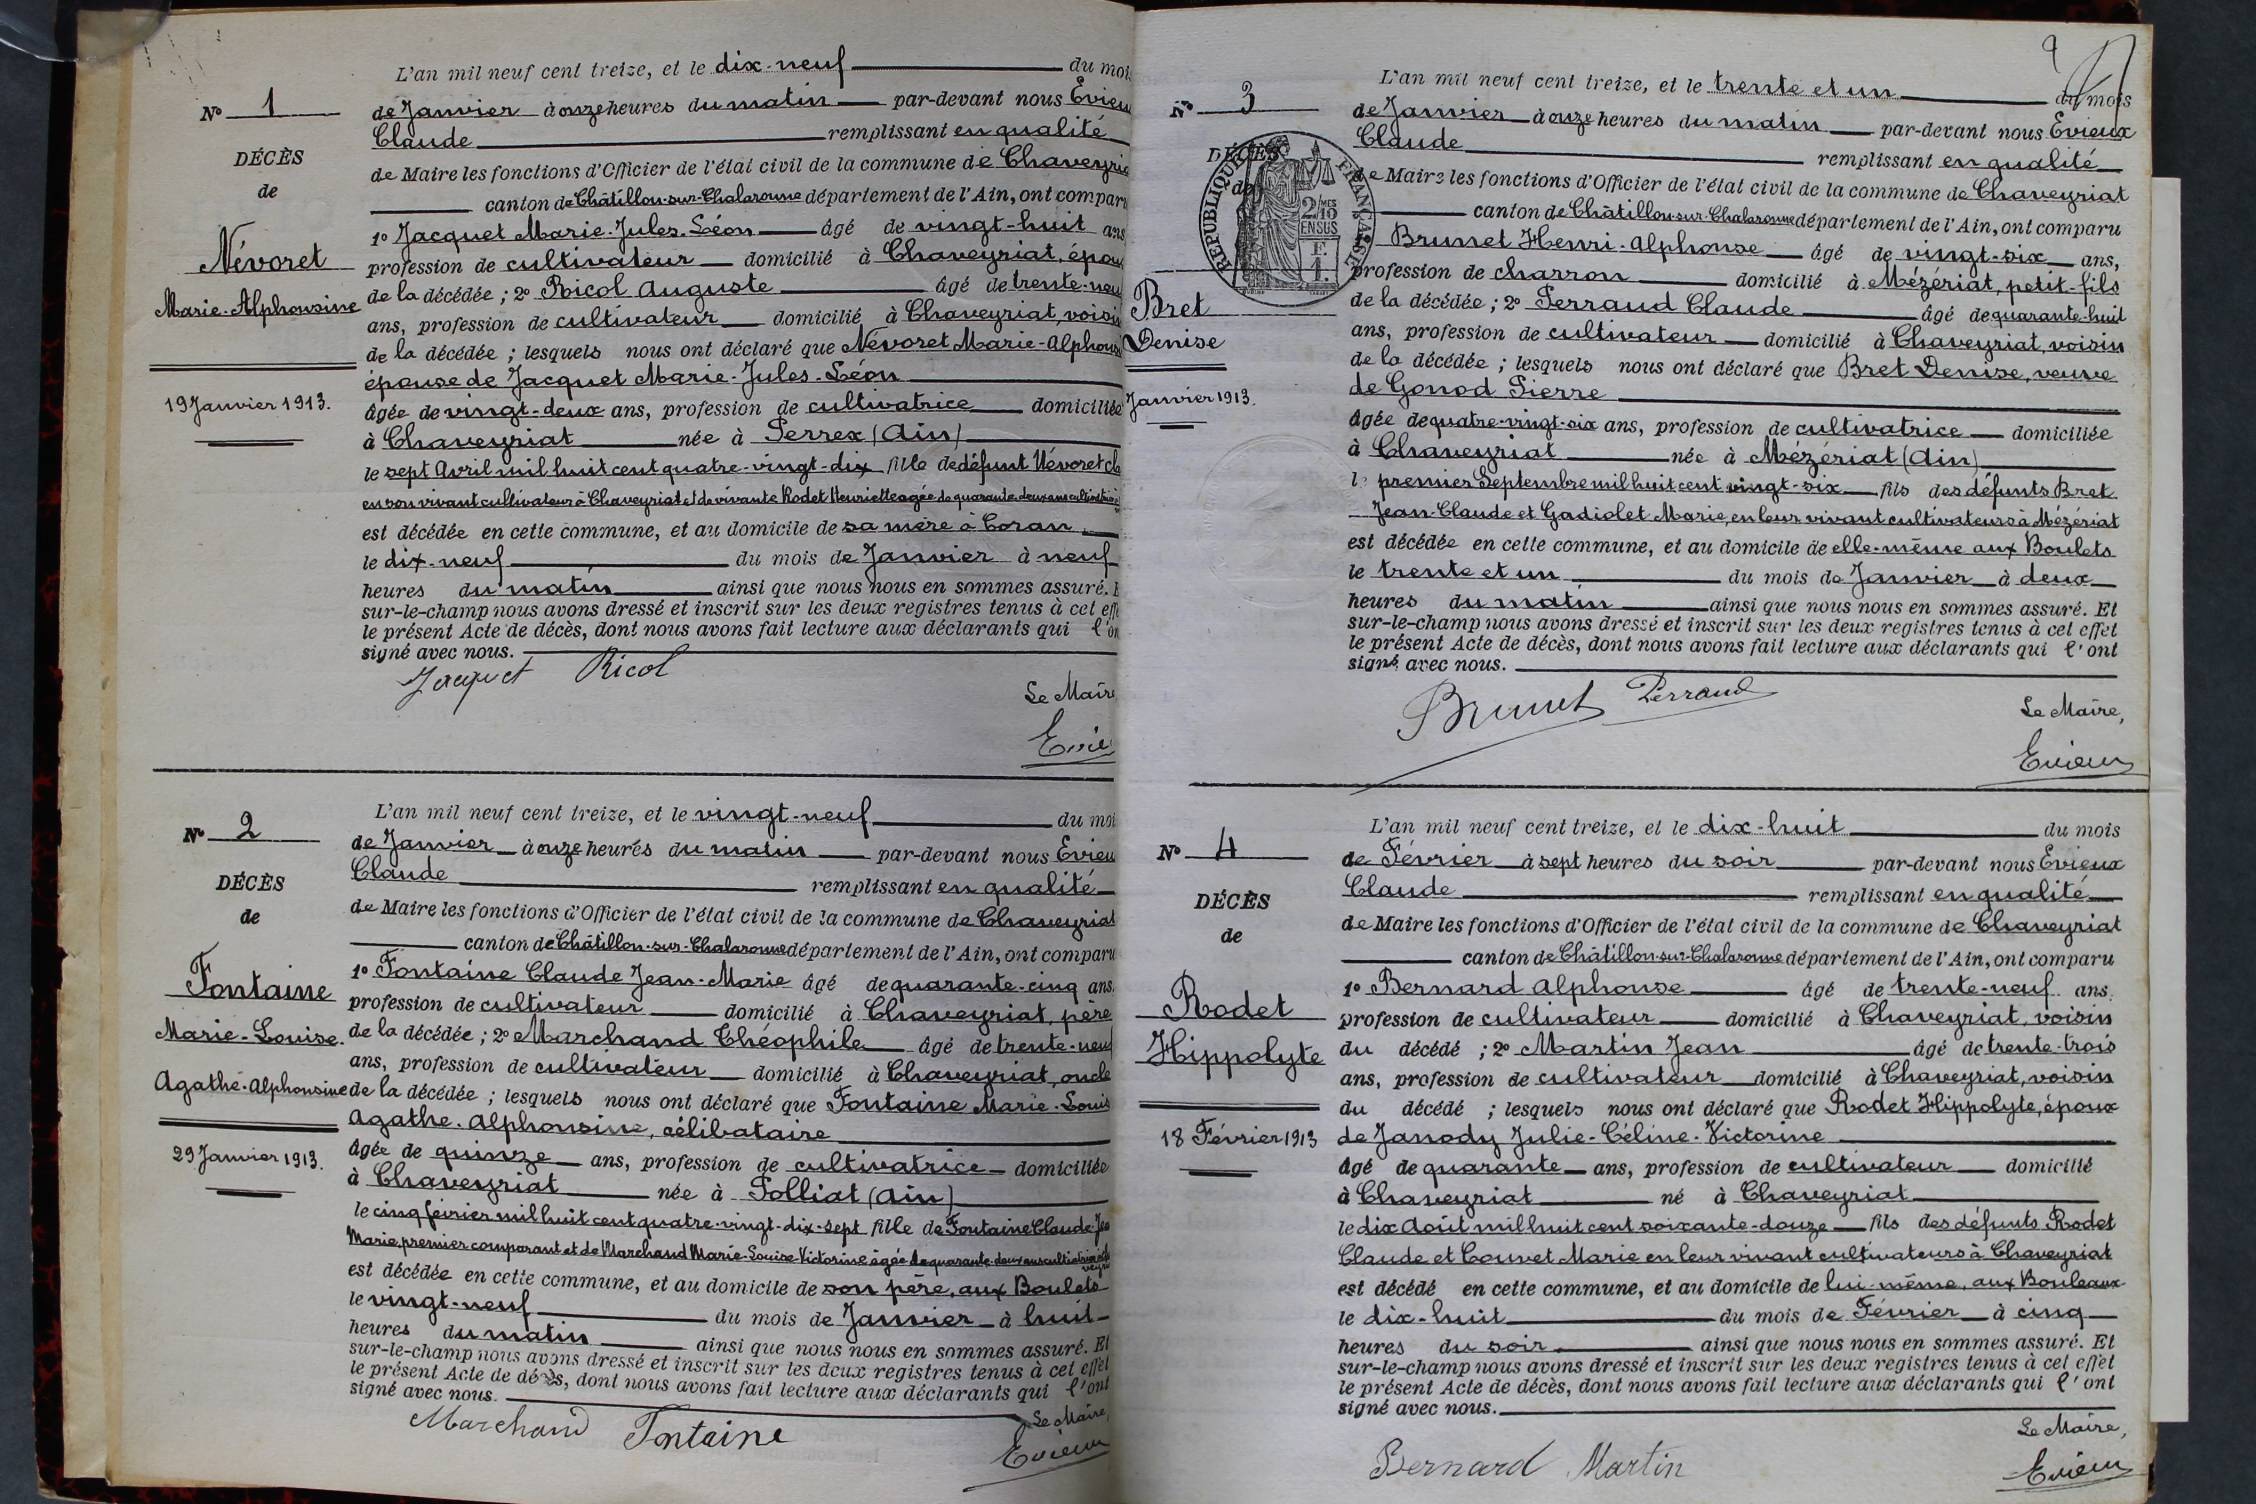 L'an mil neuf cent treize, et le dix-neuf du mois
No 1
de Janvier à onze heures du matin par-devant nous Evieu
Claude remplissant en qualité
DÉCÈS
de Maire les fonctions d'Officier de l'état civil de la commune de Chaveyria
de
canton de Châtillon-sur-Chalaronne département de l'Ain, ont comparu
1o Jacquet Marie-Jules-Léon âgé de vingt-huit ans
Névoret
profession de cultivateur domicilié à Chaveyriat, épou
Marie-Alphonsine
de la décédée ; 2o Ricol Auguste âgé de trente-neu
ans, profession de cultivateur domicilié à Chaveyriat, voisin
de la décédée ; lesquels nous ont déclaré que Névoret Marie-Alphons
épouse de Jacquet Marie-Jules-Léon
19 Janvier 1913.
âgée de vingt-deux ans, profession de cultivatrice domiciliée
à Chaveyriat née à Perrex (Ain)
le sept Avril mil huit cent quatre-vingt-dix fille de défunt Névoret Cla
en son vivant cultivateur à Chaveyriat et de vivante Rodet Henriette agée de quarante-deux ans cultivatrice
est décédée en cette commune, et au domicile de sa mère à Coran
le dix-neuf du mois de Janvier à neuf
heures du matin ainsi que nous nous en sommes assuré. E
sur-le-champ nous avons dressé et inscrit sur les deux registres tenus à cet effe
le présent Acte de décès, dont nous avons fait lecture aux déclarants qui l'on
signé avec nous.
Jacquet Ricol
Le Maire
Evieu
L'an mil neuf cent treize, et le vingt-neuf du moi
No 2
de Janvier à onze heures du matin par-devant nous Evieu
Claude remplissant en qualité
DÉCÈS
de Maire les fonctions d'Officier de l'état civil de la commune de Chaveyriat
de
canton de Châtillon-sur-Chalaronne département de l'Ain, ont comparu
1o Fontaine Claude Jean-Marie âgé de quarante-cinq ans.
Fontaine
profession de cultivateur domicilié à Chaveyriat, père
Marie-Louise.
de la décédée ; 2o Marchand Théophile âgé de trente-neuf
ans, profession de cultivateur domicilié à Chaveyriat, oncle
Agathe-Alphonsine
de la décédée ; lesquels nous ont déclaré que Fontaine Marie-Louis
Agathe-Alphonsine, célibataire
29 Janvier 1913.
âgée de quinze ans, profession de cultivatrice domiciliée
à Chaveyriat née à Polliat (Ain)
le cinq février mil huit cent quatre-vingt-dix-sept fille de Fontaine Claude-Jea
Marie, premier comparant et de Marchand Marie-Louise-Victorine âgée de quarante-deux ans cultivatrice
est décédée en cette commune, et au domicile de son père, aux Boulets
le vingt-neuf du mois de Janvier à huit
heures du matin ainsi que nous nous en sommes assuré. Et
sur-le-champ nous avons dressé et inscrit sur les deux registres tenus à cet effet
le présent Acte de décès, dont nous avons fait lecture aux déclarants qui l'ont
signé avec nous.
Marchand Fontaine
Le Maire,
Evieux
9
L'an mil neuf cent treize, et le trente et un du mois
No 3
de Janvier à onze heures du matin par-devant nous Evieux
Claude remplissant en qualité
DÉCÈS
de Maire les fonctions d'Officier de l'état civil de la commune de Chaveyriat
de
RÉPUBLIQUE FRANÇAISE
2/MES 10 EN SUS
F. 1.
canton de Châtillon-sur-Chalaronne département de l'Ain, ont comparu
Brunet Henri-Alphonse âgé de vingt-six ans,
profession de charron domicilié à Mézériat, petit-fils
Bret
de la décédée ; 2o Perraud Claude âgé de quarante-huit
Denise
ans, profession de cultivateur domicilié à Chaveyriat, voisin
de la décédée ; lesquels nous ont déclaré que Bret Denise, veuve
de Gonod Pierre
Janvier 1913.
âgée de quatre-vingt-six ans, profession de cultivatrice domiciliée
à Chaveyriat née à Mézériat (Ain)
le premier Septembre mil huit cent vingt-six fils des défunts Bret
Jean-Claude et Gadiolet Marie, en leur vivant cultivateurs à Mézériat
est décédée en cette commune, et au domicile de elle-même aux Boulets
le trente et un du mois de Janvier à deux
heures du matin ainsi que nous nous en sommes assuré. Et
sur-le-champ nous avons dressé et inscrit sur les deux registres tenus à cet effet
le présent Acte de décès, dont nous avons fait lecture aux déclarants qui l'ont
signé avec nous.
Brunet Perraud
Le Maire,
Evieux
L'an mil neuf cent treize, et le dix-huit du mois
No 4
de Février à sept heures du soir par-devant nous Evieux
Claude remplissant en qualité
DÉCÈS
de Maire les fonctions d'Officier de l'état civil de la commune de Chaveyriat
de
canton de Châtillon-sur-Chalaronne département de l'Ain, ont comparu
1o Bernard Alphonse âgé de trente-neuf ans.
Rodet
profession de cultivateur domicilié à Chaveyriat, voisin
Hippolyte
du décédé ; 2o Martin Jean âgé de trente-trois
ans, profession de cultivateur domicilié à Chaveyriat, voisin
du décédé ; lesquels nous ont déclaré que Rodet Hippolyte, époux
18 Février 1913
de Janody Julie-Céline-Victorine
âgé de quarante ans, profession de cultivateur domicilié
à Chaveyriat né à Chaveyriat
le dix Août mil huit cent soixante-douze fils des défunts Rodet
Claude et Couvet Marie en leur vivant cultivateurs à Chaveyriat
est décédé en cette commune, et au domicile de lui-même, aux Bouleaux
le dix-huit du mois de Février à cinq
heures du soir ainsi que nous nous en sommes assuré. Et
sur-le-champ nous avons dressé et inscrit sur les deux registres tenus à cet effet
le présent Acte de décès, dont nous avons fait lecture aux déclarants qui l'ont
signé avec nous.
Bernard Martin
Le Maire,
Evieux